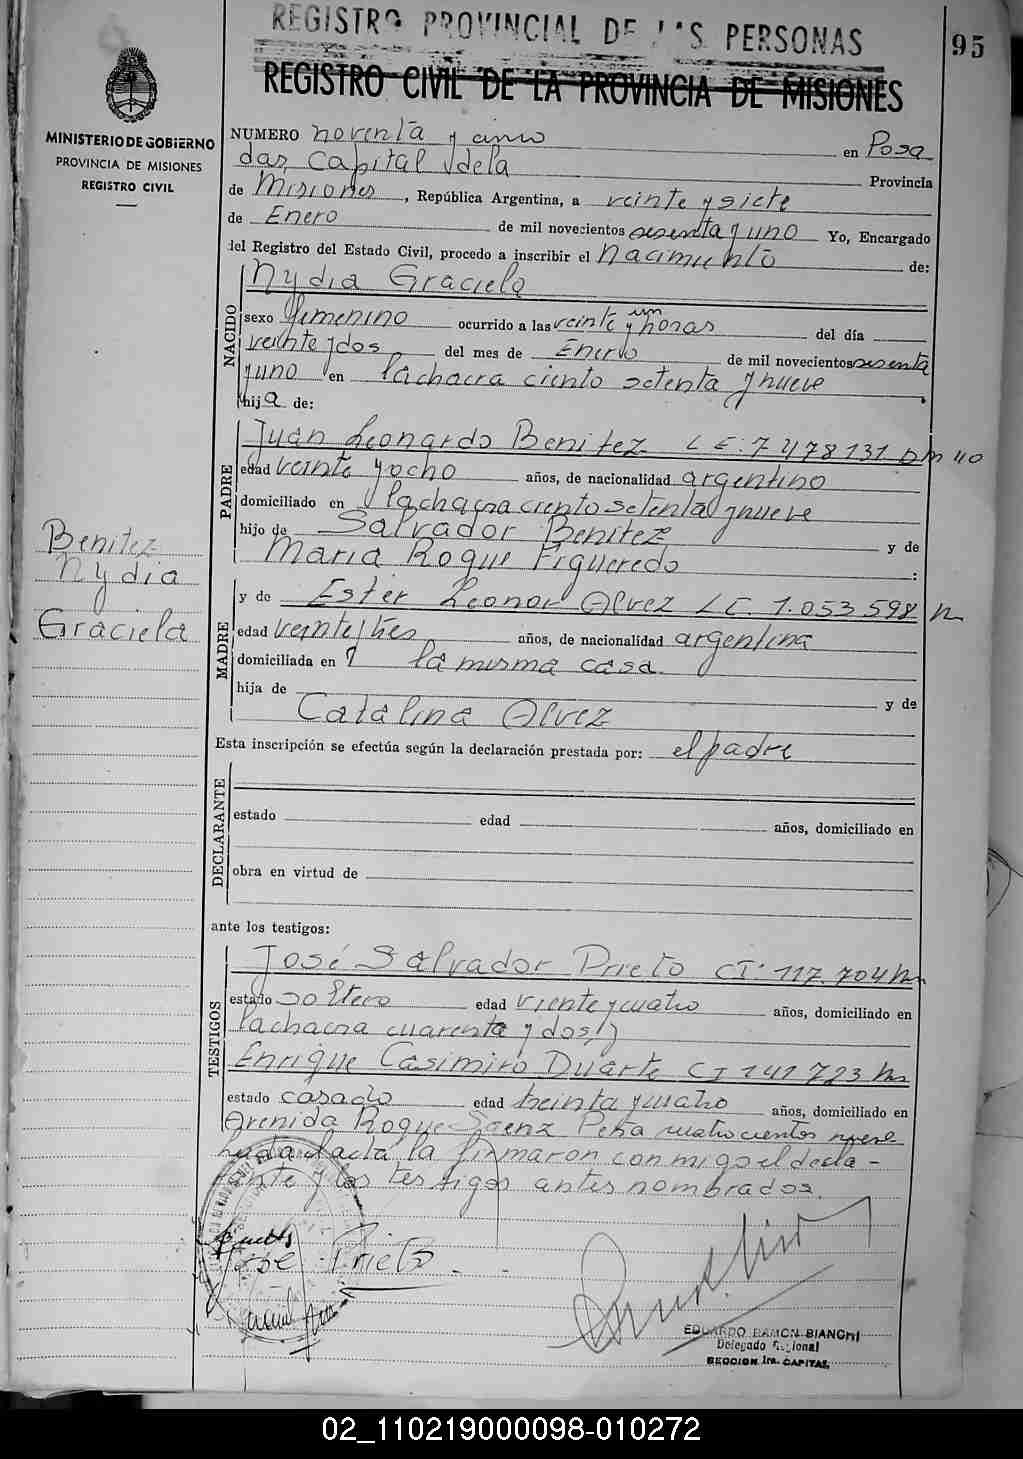 REGISTRO PROVINCIAL DE LAS PERSONAS
95
REGISTRO CIVIL DE LA PROVINCIA DE MISIONES
MINISTERIO DE GOBIERNO
PROVINCIA DE MISIONES
REGISTRO CIVIL
NUMERO noventa y cinco en Posa
das, Capital dela Provincia
de Misiones, República Argentina, a veinte y siete
de Enero de mil novecientos sesenta y uno Yo, Encargado
del Registro del Estado Civil, procedo a inscribir el nacimiento de:
NACIDO
Nydia Graciela
sexo femenino ocurrido a las veinte y un horas del día
veinte y dos del mes de Enero de mil novecientos sesenta
y uno en la chacra ciento setenta y nueve
hija de:
PADRE
Juan Leonardo Benitez L E: 7478131 D M 40
edad veinte y ocho años, de nacionalidad argentino
domiciliado en la chacra ciento setenta y nueve
hijo de Salvador Benitez y de
Maria Roque Figueredo :
Benitez
Nydia
Graciela
MADRE
y de Ester Leonor Alvez L C. 1.053 598 m
edad veinte y tres años, de nacionalidad argentina
domiciliada en la misma casa.
hija de y de
Catalina Alvez
Esta inscripción se efectúa según la declaración prestada por: el padre
DECLARANTE
estado edad años, domiciliado en
obra en virtud de
ante los testigos:
TESTIGOS
José Salvador Prieto CI. 117.704 m
estado soltero edad viente y cuatro años, domiciliado en
la chacra cuarenta y dos, y
Enrique Casimiro Duarte C I 141723 m
estado casado edad treinta y cuatro años, domiciliado en
Avenida Roque Saenz Peña cuatrocientos nueve
la firmaron conmigo el decla-
rante y los testigos antes nombrados.
José Prieto
EDUARDO RAMON BIANCHI
Delegado Regional
SECCION 1ra. CAPITAL
02_110219000098-010272